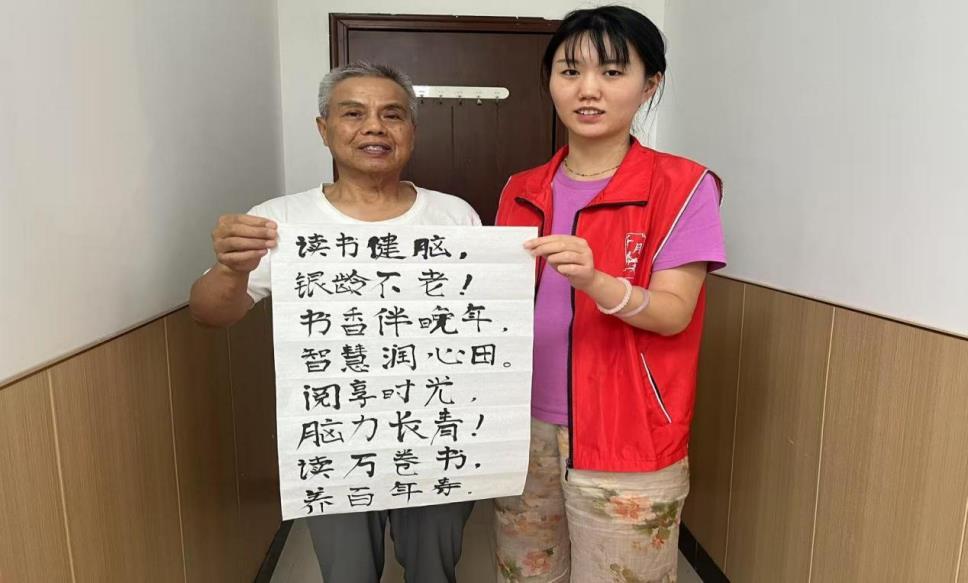 读书健脑，
银龄不老！
书香伴晚年，
智慧润心田。
阅享时光，
脑力长青！
读万卷书，
养百年寿.